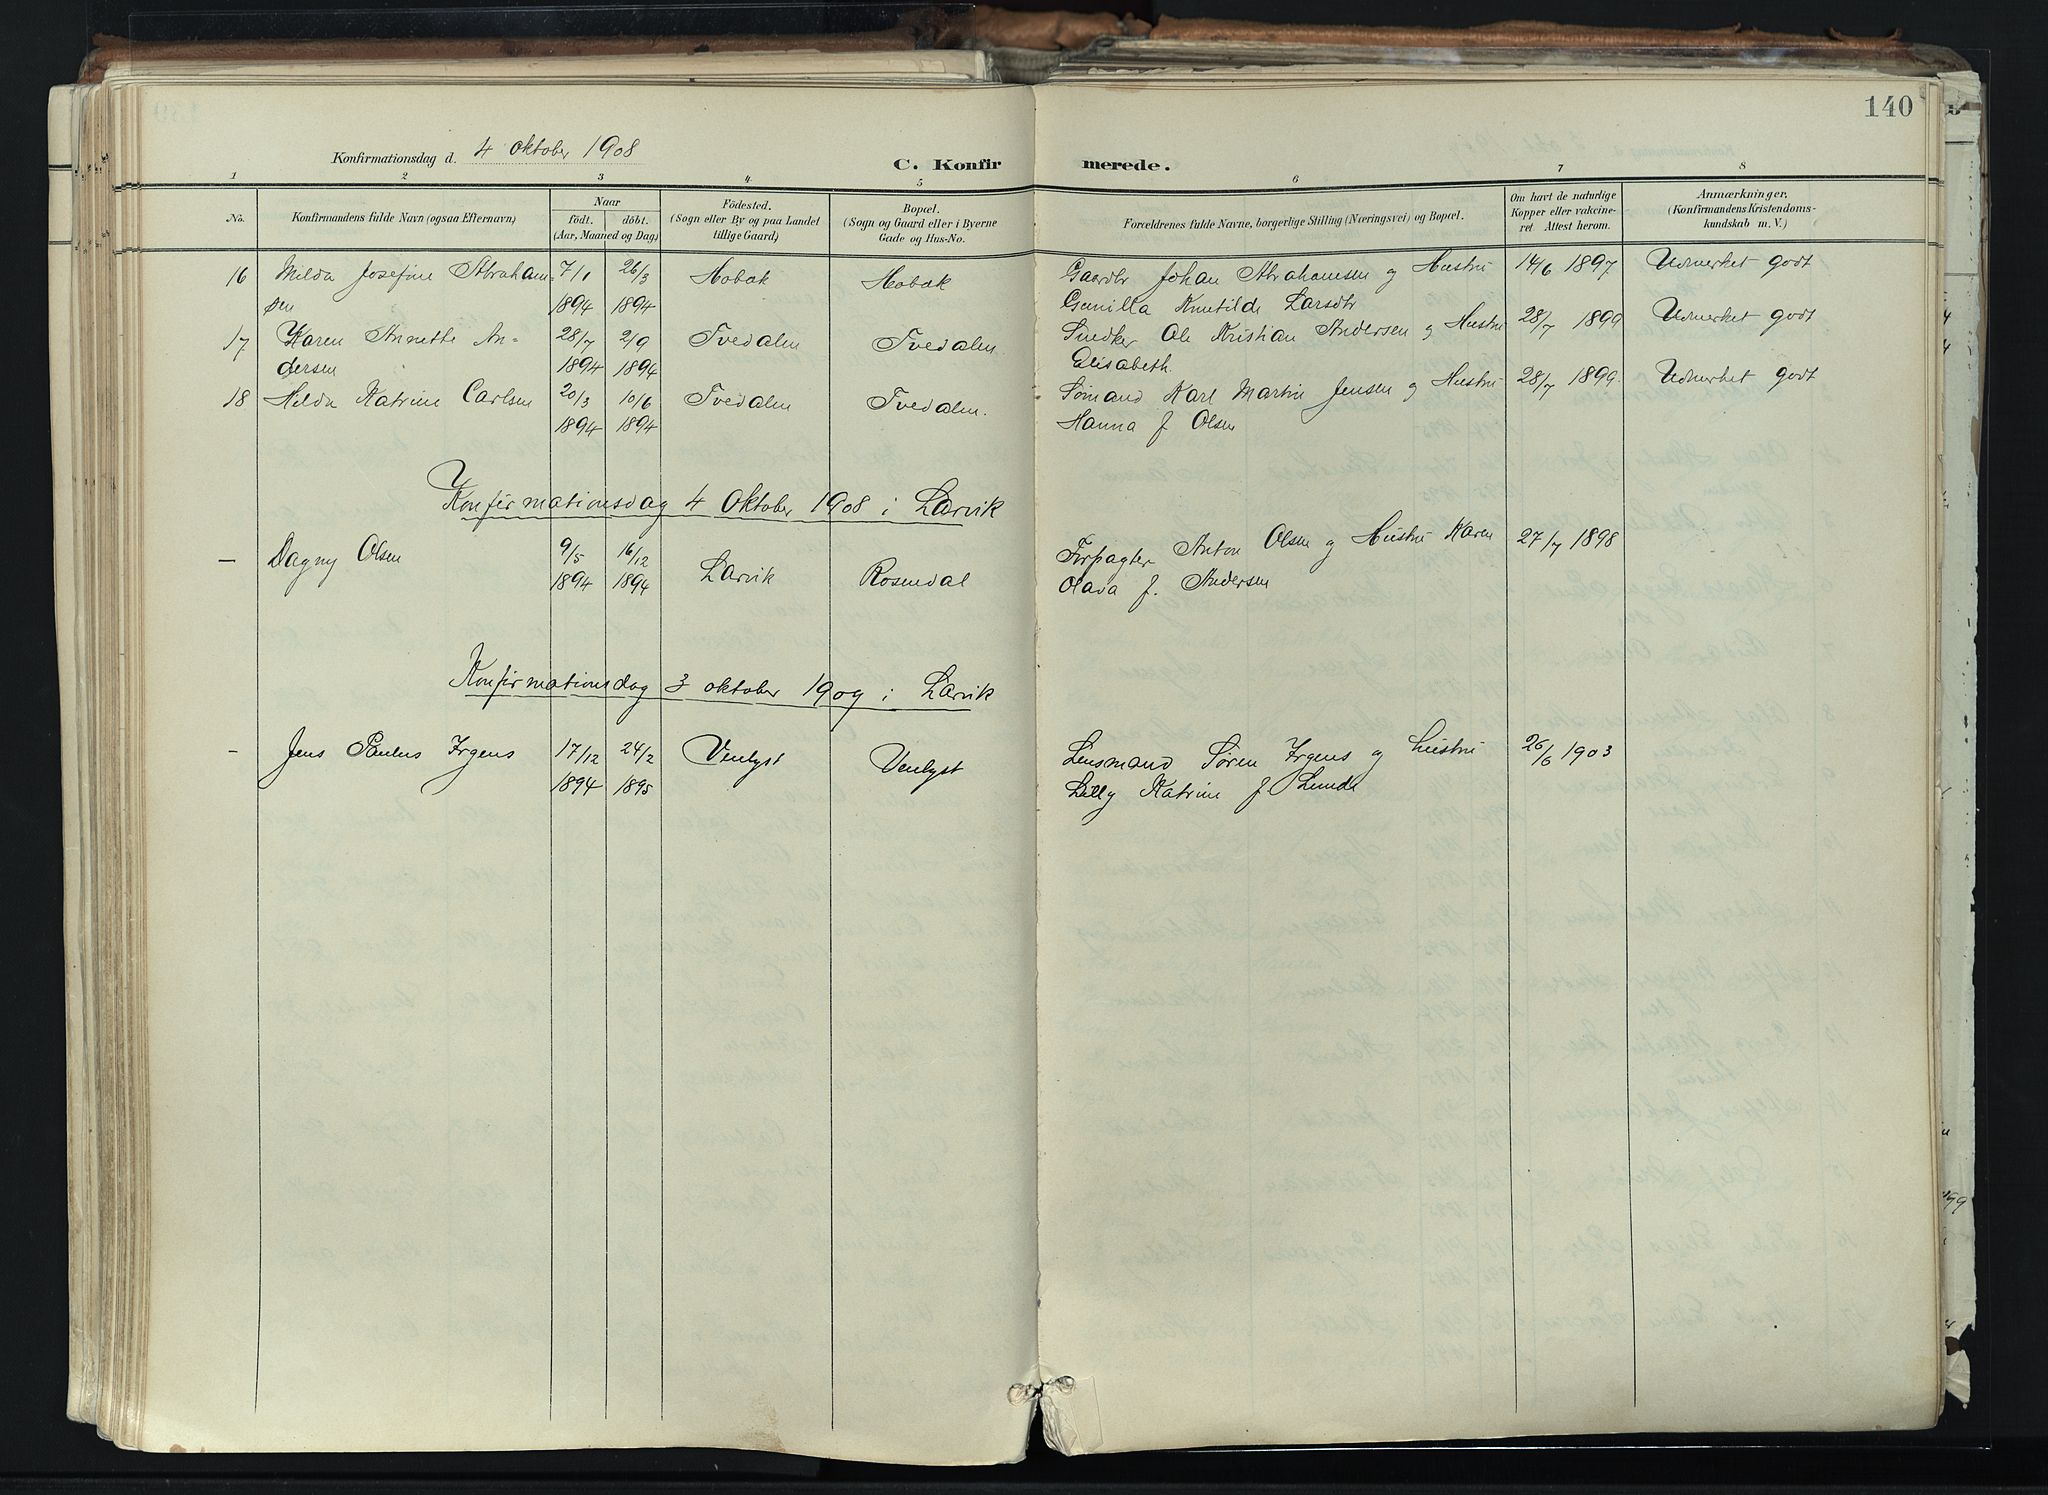 140
Konfirmationsdag d. 4 Oktober 1908
C. Konfirmerede.
1 2 3 4 5 6 7 8
No.
Konfirmandens fulde Navn (ogsaa Efternavn)
Naar
födt. döbt.
(Aar, Maaned og Dag)
Födested.
(Sogn eller By og paa Landet
tillige Gaard)
Bopæl.
(Sogn og Gaard eller i Byerne
Gade og Hus-No.
Forældrenes fulde Navne, borgerlige Stilling (Næringsvei) og Bopæl.
Om havt de naturlige
Kopper eller vakcine-
ret Attest herom.
Anmærkninger,
(Konfirmandens Kristendoms-
kundskab m. V.)
16 Milda Josefine Abraham= 7/1 26/3 Hobæk Hobæk Gaardbr Johan Abrahamsen og Hustru 14/6 1897 Udmerket godt
sen 1894 1894 Gunilla Knutilde Larsdtr
17 Karen Annette An= 28/7 2/9 Tvedalen Tvedalen Snedker Ole Kristian Andersen og Hustru 28/7 1899 Udmerket godt
dersen 1894 1894 Elisabeth.
18 Hilda Katrine Carlsen 20/3 10/6 Tvedalen Tvedalen. Sømand Karl Martin Jensen og Hustru 28/7 1899. Udmerket godt
1894 1894 Hanna f Olsen
Konfirmationsdag 4 Oktober 1908 i Larvik
— Dagny Olsen 9/5 16/12 Larvik Rosendal Forpagter Anton Olsen og Hustru Karen 27/7 1898
1894 1894 Olava f. Andersen
Konfirmationsdag 3 oktober 1909 i Larvik
- Jens Paulus Irgens 17/12 24/2 Venlyst Venlyst Lensmand Søren Irgens og hustru 26/6 1903
1894 1895 Lilly Katrine f Lunde